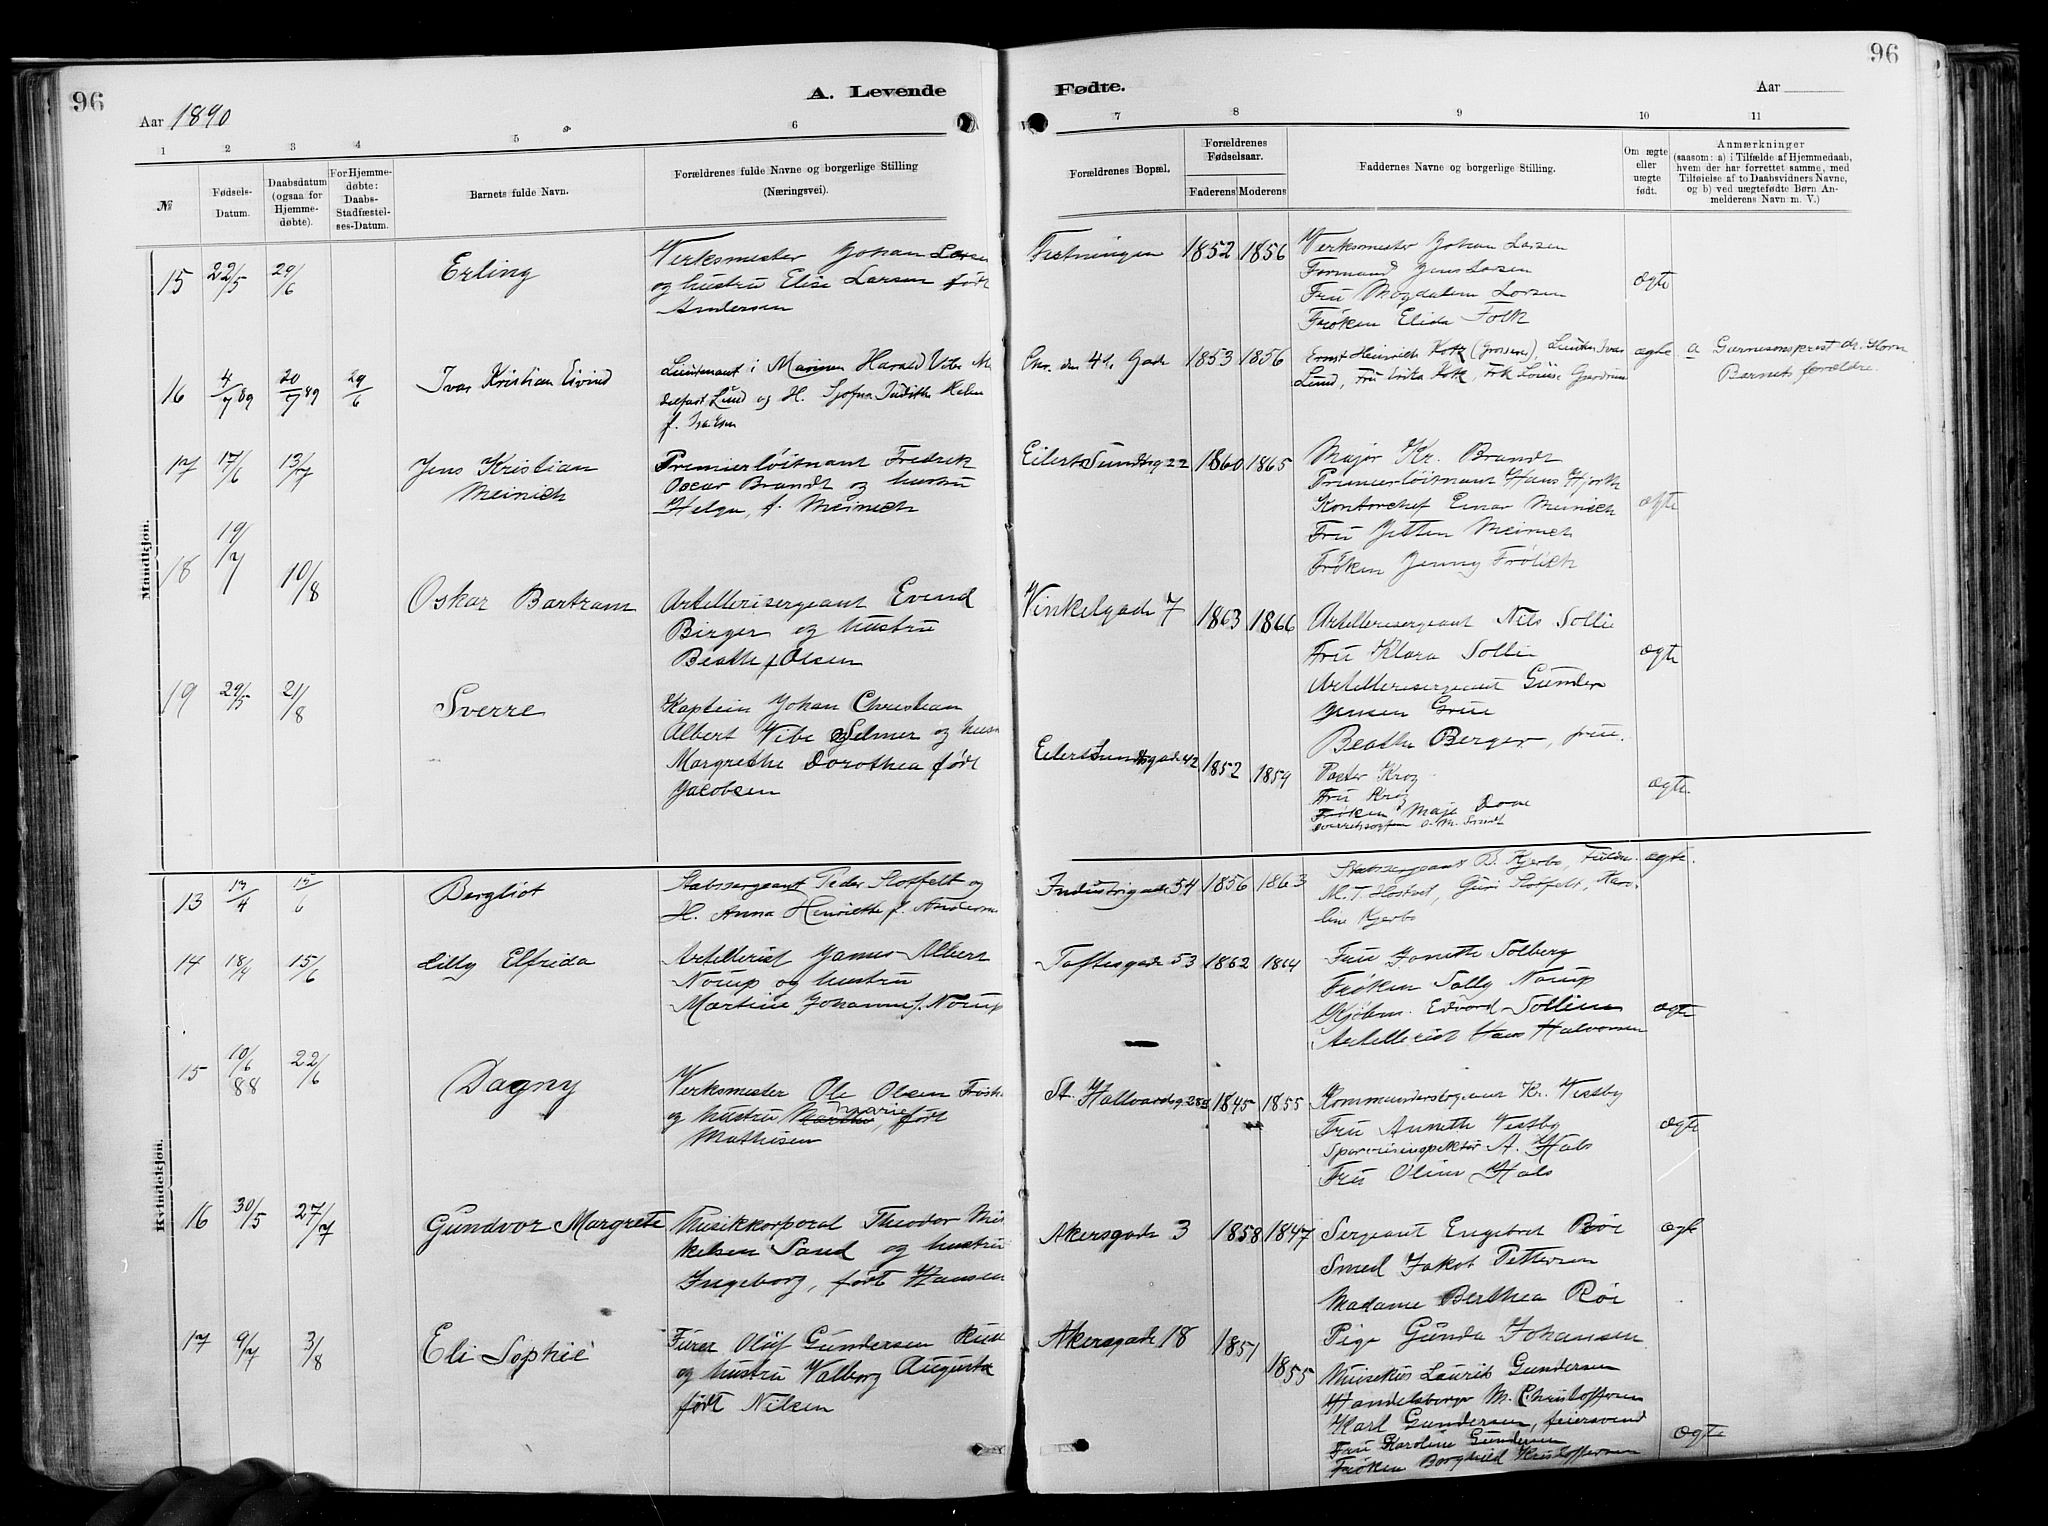 96
A. Levende
Aar 1890
1 2 3 4 5 6
№
Fødsels-
Datum.
Daabsdatum
(ogsaa for
Hjemme-
døbte).
For Hjemme-
døbte:
Daabs-
Stadfæstel-
ses-Datum.
Barnets fulde Navn.
Forældrenes fulde Navne og borgerlige Stilling
(Næringsvei).
Mandkjøn.
15 22/5 29/6 Erling
Verksmester Johan Larsen
og hustru Elise Larsen født
Andersen
16 4/7 89 20/7 89 29/6 Ivar Kristian Eivind
Lieutenant i Marinen Harald Vibe
Lund og H. Judith
17 17/6 13/7 Jens Kristian
Meinich
Premierløitnant Fredrik
Oscar Brandt og hustru
Helga, f. Meinich
18 19/7 10/8 Oskar Bartram
Artellerisergeant Evend
Birger og hustru
Beathe f Olsen
19 29/5 21/8 Sverre
Kaptein Johan Christian
Albert Vibe Selmer og
Margrethe Dorothea født
Jacobsen
Kvindekjøn.
13 13/4 15/6 Bergliot
Stabssergeant Peder Slotfelt og
H. Anna Henriette f.
14 18/4 15/6 Lilly Elfrida
Artellerist James Albert
Norup og hustru
Martine Johanne f. Norup
15 10/6 88 22/6 Dagny
Verksmester Ole Olsen
og hustru Marie, født
Mathisen
16 30/5 27/7 Gundvor Margrete
Musikkorporal Theodor Mi-
kelsen Sand og hustru
Ingeborg, født Hansen
17 9/7 3/8 Eli Sophie
Furer Olaf Gundersen
og hustru Valborg Augusta
født Nilsen
96
Fødte.
Aar
7 8 9 10 11
Forældrenes Bopæl.
Forældrenes
Fødselsaar.
Faderens Moderens
Faddernes Navne og borgerlige Stilling.
Om ægte
eller
uægte
født.
Anmærkninger
(saasom: a) i Tilfælde af Hjemmedaab,
hvem der har forrettet samme, med
Tilføielse af to Daabsvidners Navne,
og b) ved uægtefødte Børn An-
melderens Navn m. V.)
Festningen 1852 1856
Verksmester Johan Larsen
Formand Jens Larsen
Fru Magdalene Larsen
Frøken Elida Falk
ægte
1853 1856
Ernst Heinrich Kotz (Grosserer), Lieuten. Ivar
Lund, Fru Erika Kotz, Frk Louise
ægte
a Garnisonsprest dr. Horn
Barnets forældre.
Eilert Sundtsg 22 1860 1865
Major Kr. Brandt
Premierløitnant Hans Hjorth
Kontorchef Einar Meinich
Fru Jetten Meinich
Frøken Jenny Frølich
ægte
Vinkelgade 7 1863 1866
Artellerisergeant Nils Sollie
Fru Klara Sollie
Artellerisergeant Gunder
Jensen Grue
Beathe Berger, frue.
ægte
Eilert Sundtsgade 42 1852 1859
Pastor Krog
Fru Krog
Frøken Maja Dove
ægte.
Industrigade 54 1856 1863
Stabssergeant B. Kjerbo,
M. T. Hostvet, Guri Slotfelt, Karo-
line Kjerbo
ægte.
Toftesgade 53 1862 1864
Fru Jonette Solberg
Frøken Sally Norup
Edvard Sollien
Artellerist Hans Halvorsen
ægte
St. Hallvardsg 1845 1855
Kommandersergeant Kr. Vestby
Fru Annette Vestby
A. Hals
Fru Oline Hals
ægte
Akersgade 3 1858 1847
Sergeant Engebret Røe
Smed Jakob Pettersen
Madame Berthea Røe
ægte
Akersgade 18 1857 1855
Pige Gunda Johansen
Musikus Laurits Gundersen
Handelsborger M. Christoffersen
Karl Gundersen, feiersvend
Fru Karoline Gundersen
Frøken Borghild Kristoffersen
ægte